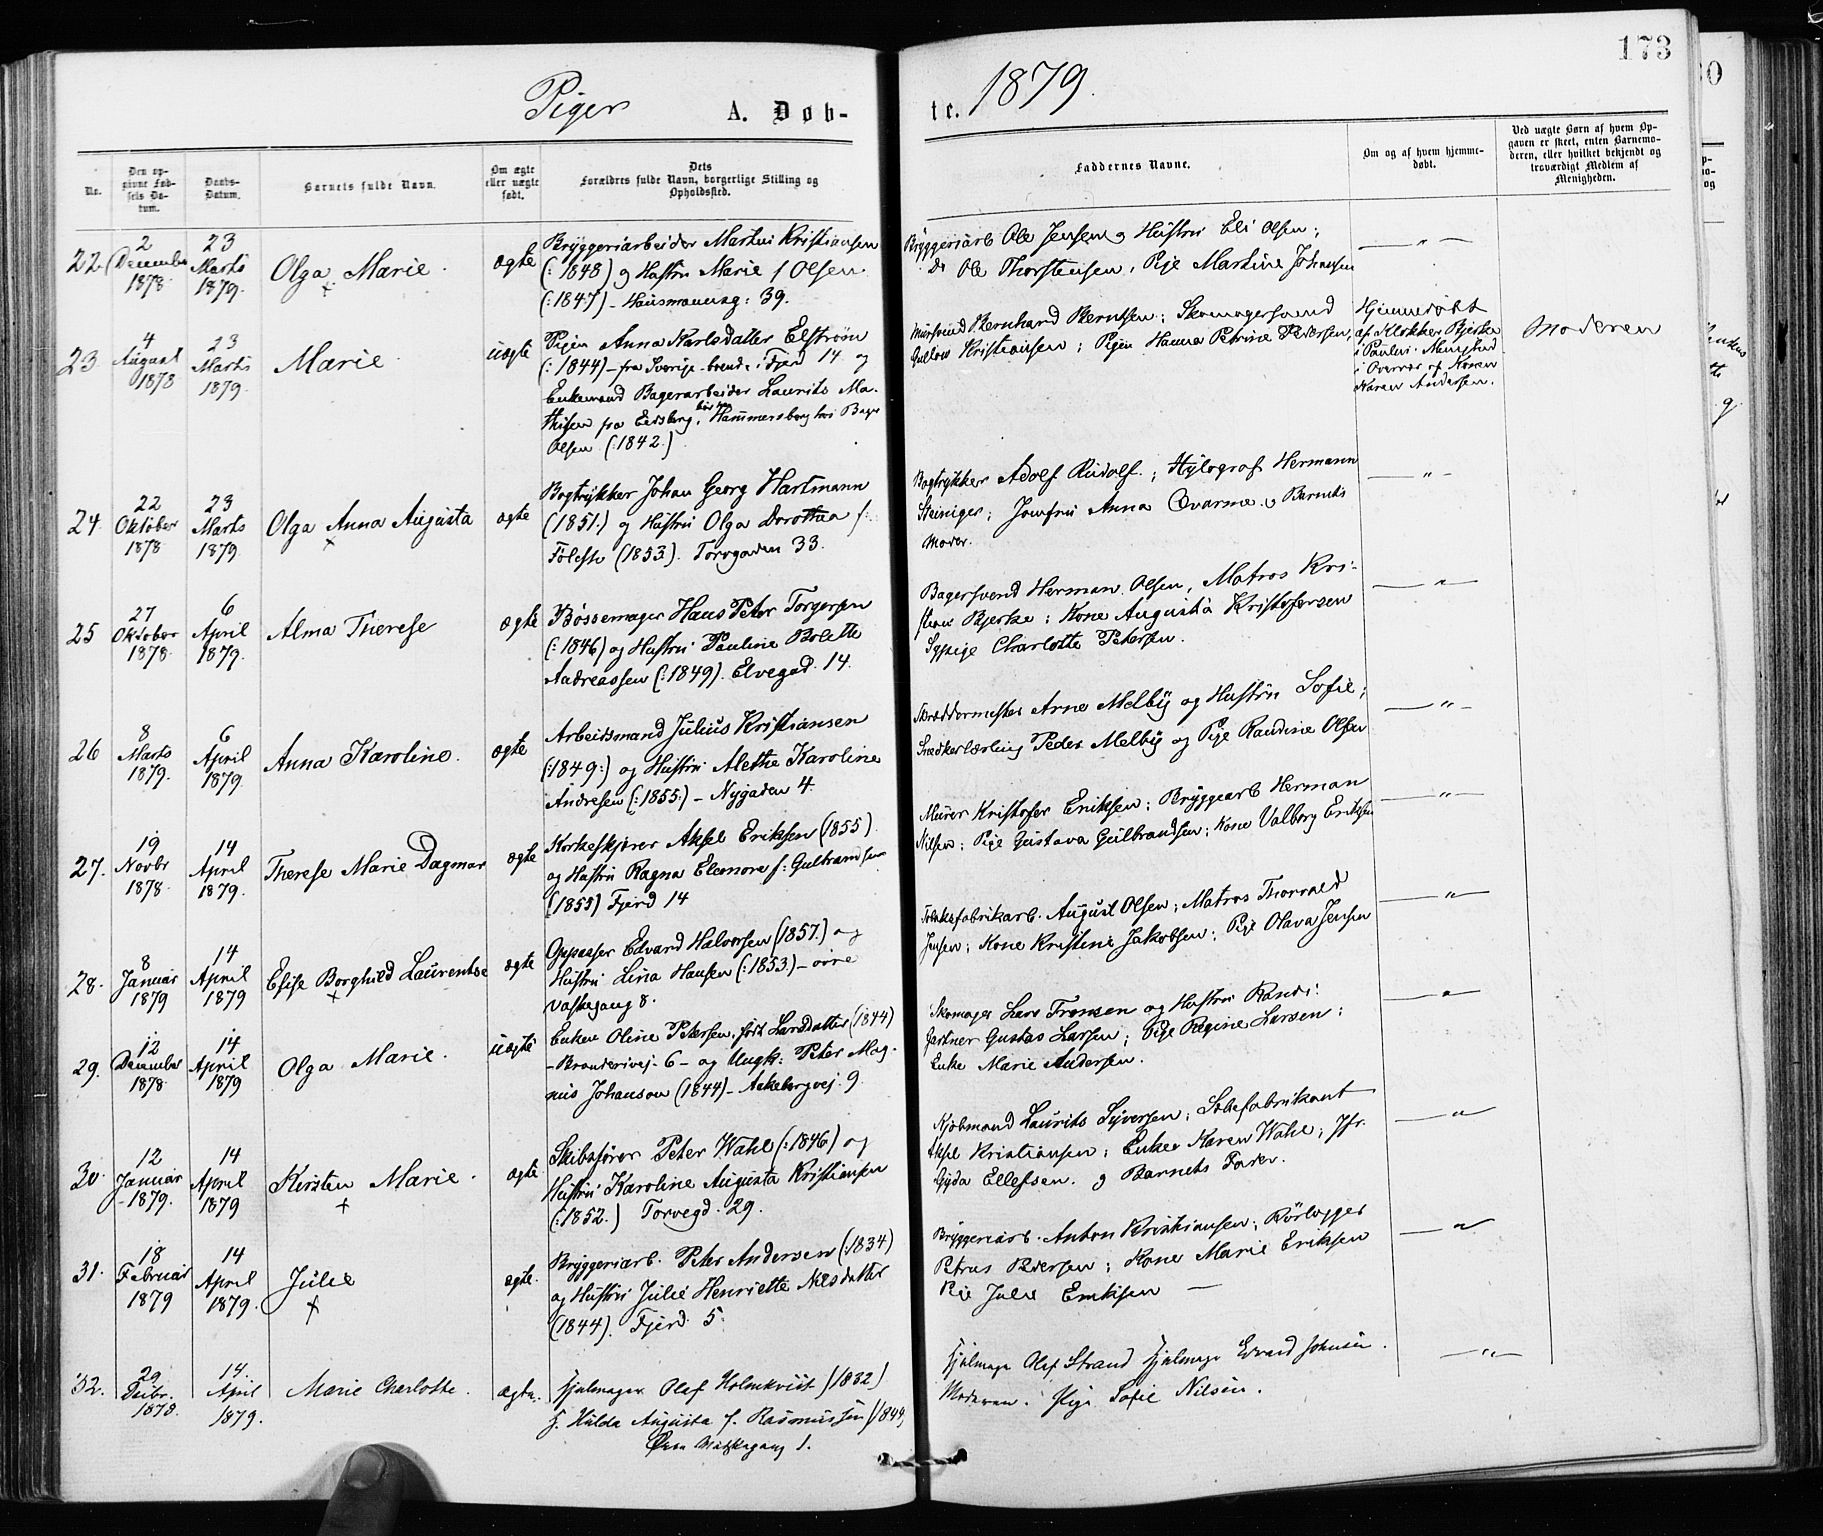 173
Piger A. Døb-
te. 1879.
No.
Den op-
givne Fød-
sels Da-
tum.
Daabs-
Datum.
Barnets fulde Navn.
Om ægte
eller uægte
født.
Dets
Forældres fulde Navn, borgerlige Stilling og
Opholdssted.
Faddernes Navne.
Om og af hvem hjemme-
døbt.
Ved uægte Børn af hvem Op-
gaven er skeet, enten Barnemo-
deren, eller hvilket bekjendt og
troværdigt Medlem af
Menigheden.
22.
2
December
1878.
23
Marts
1879.
Olga Marie.
ægte
Bryggeriarbeider Martin Kristiansen
(:1848) og Hustru Marie f Olsen
(:1847) – Hausmannsg: 39.
Bryggeriarb Ole Jensen og Hustru Eli Olsen;
Do Ole Thorstensen, Pige Martine Johansen
— " —
23.
4
August
1878
23
Marts
1879.
Marie
uægte
Pigen Anna Karlsdatter Elstrøm
(:1844) – fra Sverige – boende i Fjerd 14 og
Enkemand Bagerarbeider Laurits Ma-
thisen fra Eidsberg, Hammersborg hos Bager
Olsen (:1842.)
Mursvend Bernhard Berntsen; Skomagersvend
Gullow Kristiansen; Pigen Hanna Petrine Pedersen,
Hjemmedøbt
af Klokker Bjerke
i Pauli Menighed
i Overvær af Konen
Karen Andersen.
Moderen
24.
22
Oktober
1878
23
Marts
1879.
Olga Anna Augusta
ægte
Bogtrykker Johan Georg Hartmann
(1851.) og Hustru Olga Dorothea f:
(1853.). Torvgaden 33.
Bogtrykker Adolf Rudolf.; Hylograf Hermann
Steiniger; Jomfru Anna og Barnets
Moder.
— " —
25
27
Oktober
1878
6
April
1879.
Alma Therese
ægte
Bøssemager Hans Peter Torgersen
(:1846) og Hustru Pauline Bolette
Andreassen (:1849). Elvegad. 14.
Bagersvend Herman Olsen, Matros Kri-
stian Bjerke; Kone Augusta Kristofersen
Sypige Charlotte Petersen.
— " —
26
8
Marts
1879.
6
April
1879.
Anna Karoline.
ægte
Arbeidsmand Julius Kristiansen
(:1849:) og Hustru Alethe Karoline
Andresen (:1855:) – Nygaden 4.
Skræddermester Arne Melby og Hustru Sofie;
Snedkerlærling Peder Melby og Pige Randine Olsen
— " —
27.
19
Novbr
1878.
14
April
1879.
Therese Marie Dagmar
ægte
Korkeskjærer Aksel Eriksen (1855)
og Hustru Ragna Eleonore f: Gulbrandsen
(1855) Fjerd 14
Murer Kristofer Eriksen; Bryggearb Herman
Nilsen; Pige Gustava Gulbrandsen; Kone Valborg Eriksen
— " —
28.
8
Januar
1879
14
April
1879
Elise Borghild Laurentse
ægte
Oppasser Edvard Halvorsen (1857.) og
Hustru Lina Hansen (:1853.) – øvre
Vaskegang 8.
Tobaksfabrikarb. August Olsen; Matros Thorvald
Jensen; Kone Kristine Jakobsen; Pige Olava Jensen
— " —
29.
12
December
1878.
14
April
1879
Olga Marie.
uægte
Enken Oline Petersen, født Larsdatter (1844)
– Brænderivej – 6 – og Ungk: Peter Mag-
nus Johanson (1844) – Aakebergvej 9.
Skomager Lars Fransen og Hustru Randi:
Gartner Gustav Larsen; Pige Regine Larsen;
Enke Marie Andersen.
— " —
30.
12
Januar
– 1879.
14
April
1879
Kirsten Marie.
ægte
Skibsfører Peter Wahl (:1846) og
Hustru Karoline Augusta Kristiansen
(:1852.) Torvegd. 29.
Kjøbmand Laurits Syversen; Sæbefabrikant
Aksel Kristiansen; Enken Karen Wahl; Jfr.
Gyda Ellefsen. og Barnets Fader.
— " —
31.
18
Februar
1879
14
April
1879.
Julie
ægte.
Bryggeriarb. Peter Andersen (:1834)
og Hustru Julie Henriette Nilsdatter
(1844). Fjerd 5.
Bryggeriarb. Anton Kristiansen; Rørlægger
Petrus Pedersen; Kone Marie Eriksen
Pige Julie Eriksen —
— " —
32.
29
1878.
14.
April
1879.
Marie Charlotte.
ægte.
Hjulmager Olaf Holmkvist (1832)
H. Hulda Augusta f. Rasmussen (1849,
Øvre Vaskegang 1.
Hjulmager Olaf Strand Hjulmager Edvard Johnsen.
Moderen. Pige Sofie Nilsen.
— " —